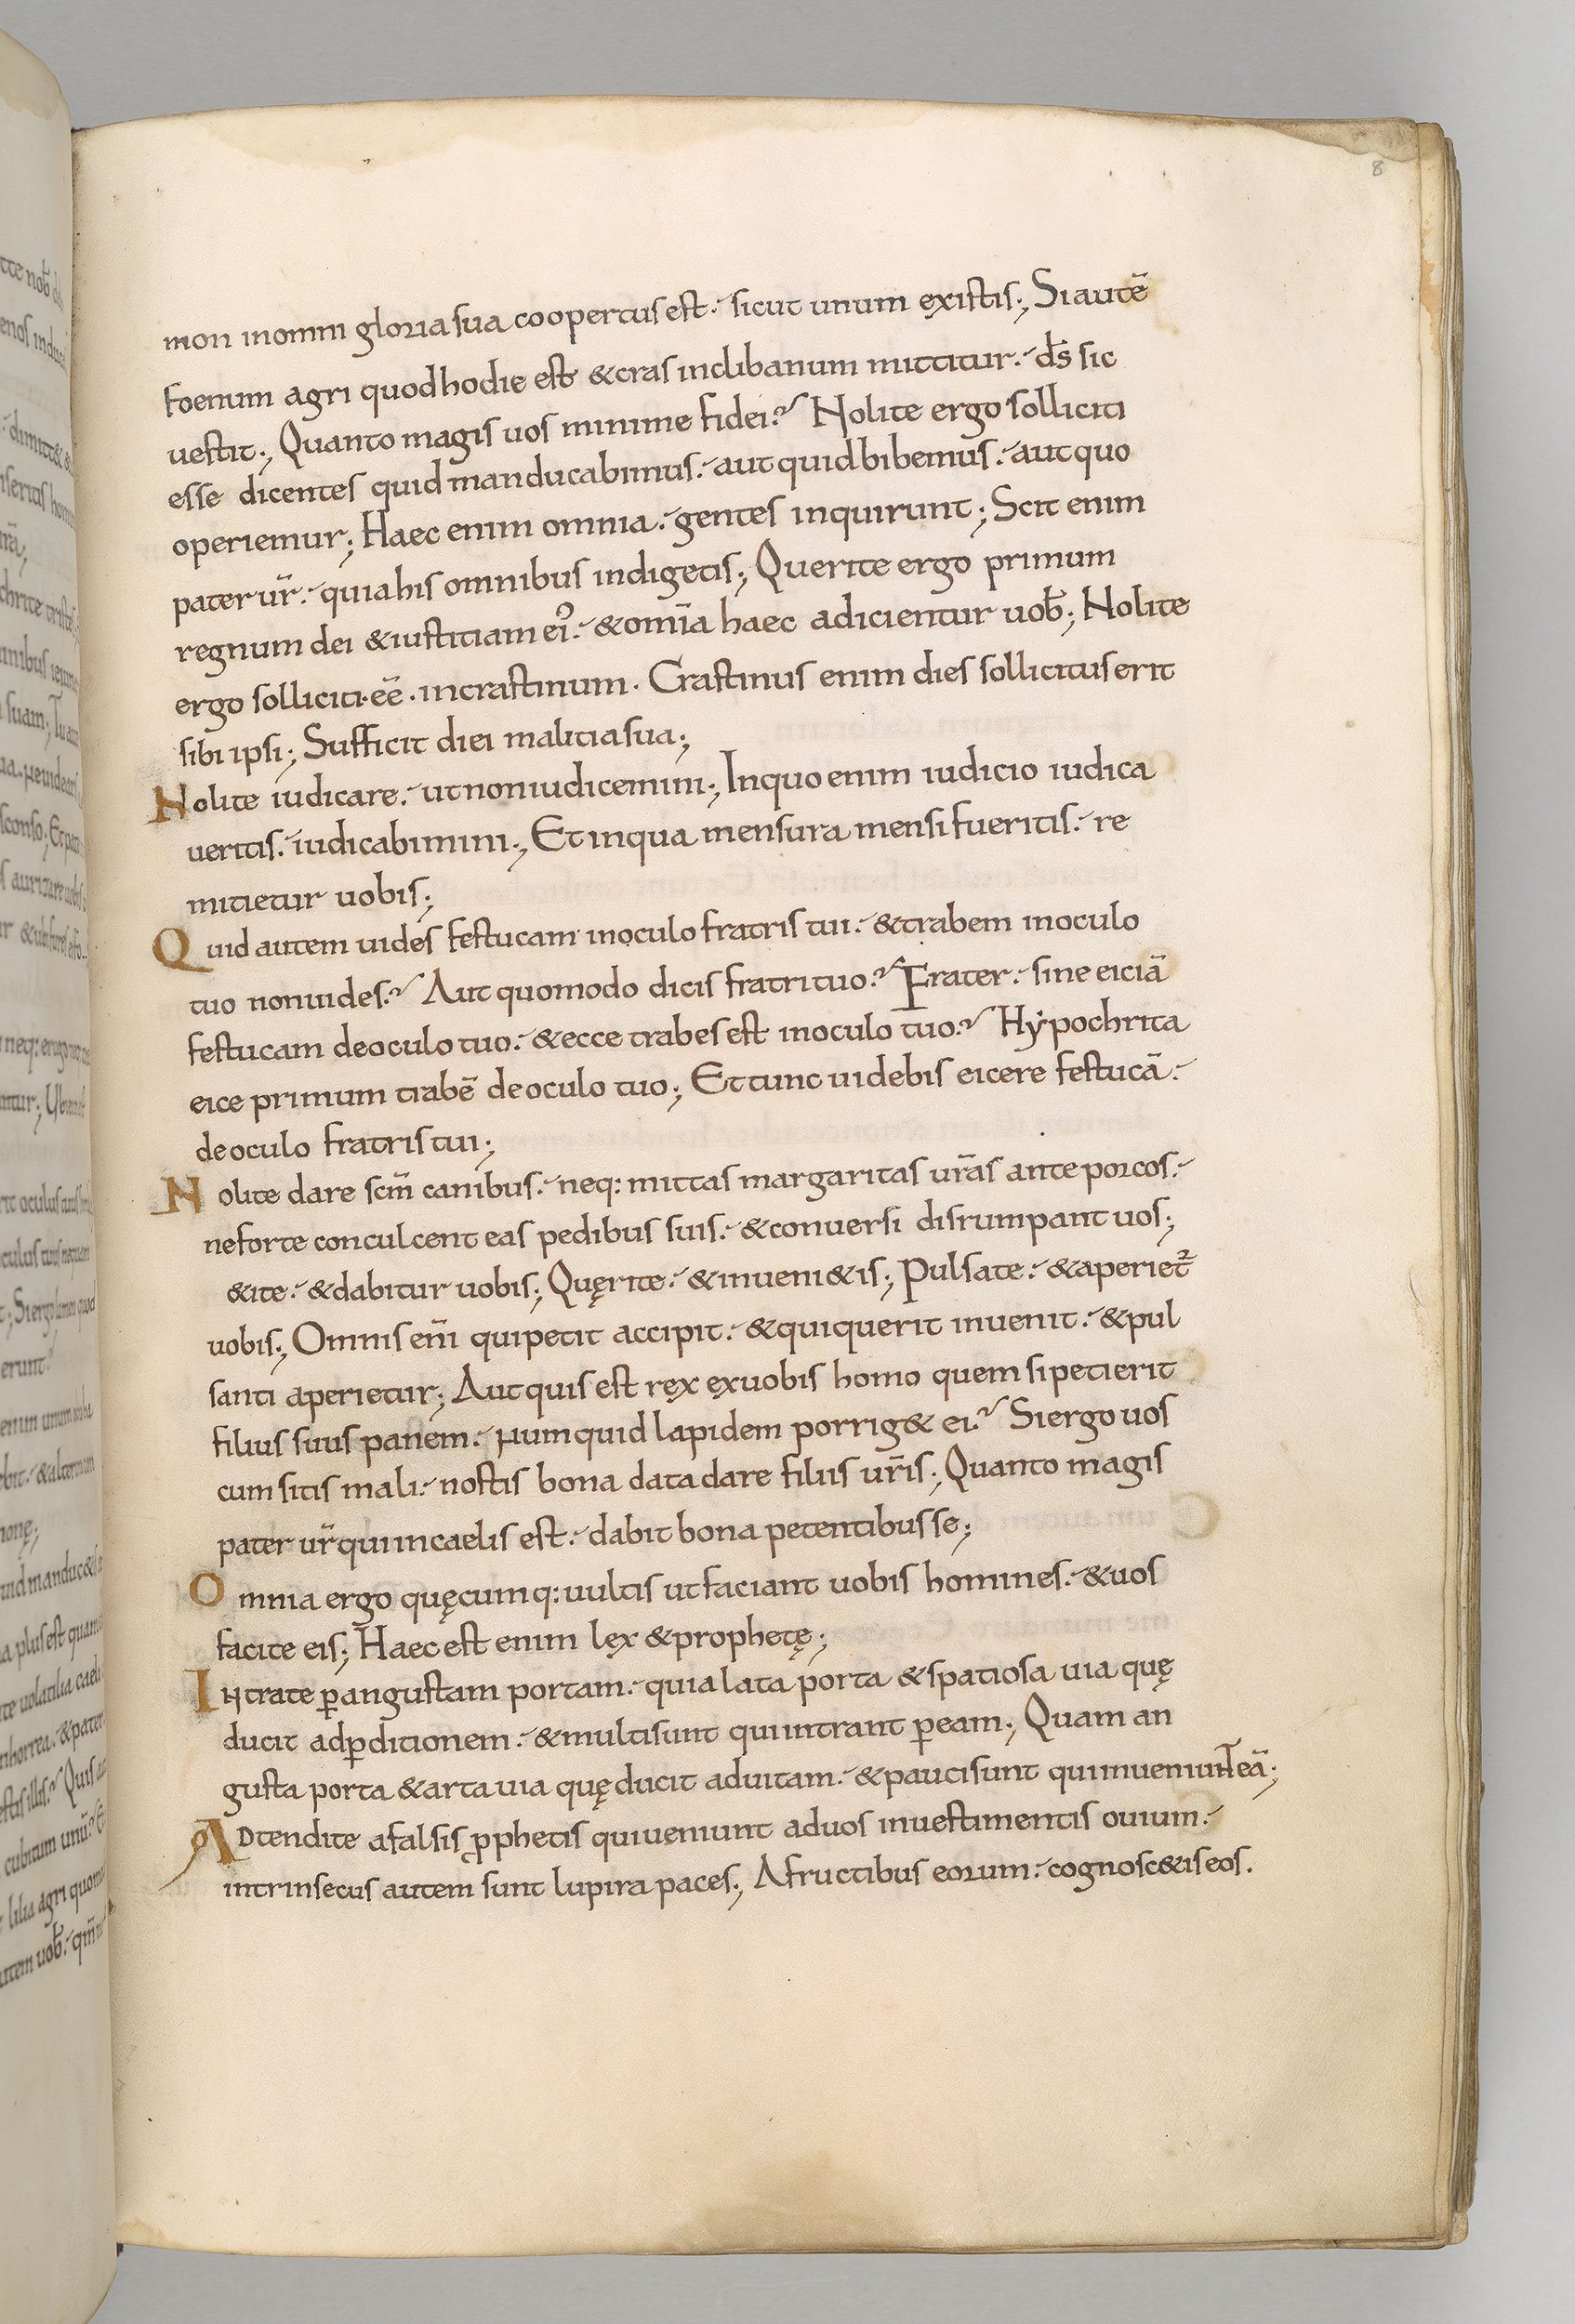 8
mon inomni gloria sua coopertus est. sicut unum existis; Si autē
foenum agri quod hodie est & cras inclibanum mittitur. d̄s sic
uestit; Quanto magis uos minime fidei? Nolite ergo solliciti
esse dicentes quid manducabimus. aut quid bibemus. aut quo
operiemur; Haec enim omnia. gentes inquirunt; Scit enim
pater ur̄. quia his omnibus indigetis; Querite ergo primum
regnum dei & iustitiam ei᾿. & om̄ia haec adicientur uob̄; Nolite
ergo solliciti · eē · incrastinum. Crastinus enim dies sollicitus erit
sibi ipsi; Sufficit diei malitia sua;
Nolite iudicare. ut non iudicemini; Inquo enim iudicio iudica
ueritis. iudicabimini; Et inqua mensura mensi fueritis. re
mitietur uobis;
Quid autem uides festucam inoculo fratris tui. & trabem inoculo
tuo non uides? Aut quomodo dicis fratri tuo? Frater. sine eiciā
festucam de oculo tuo. & ecce trabes est inoculo tuo? Hẏpochrita
eice primum trabē de oculo tuo; Et tunc uidebis eicere festucā.
de oculo fratris tui;
Nolite dare scm̄ canibus. neq: mittas margaritas ur̄as ante porcos.
ne forte conculcent eas pedibus suis. & conuersi disrumpant uos;
&ite. & dabitur uobis; Quęrite. & inueni&is; Pulsate. & aperiet᷑
uobis; Omnis enī qui petit accipit. & qui querit inuenit. & pul
santi aperietur; Aut quis est ręx ęx uobis homo quem si petierit
filius suus panem. numquid lapidem porrig& ei? Si ergo uos
cum sitis mali. nostis bona data dare filiis ur̄is; Quanto magis
pater ur̄ qui incaelis est. dabit bona petentibus se;
Omnia ergo quęcumq: uultis ut faciant uobis homines. & uos
facite eis; Haec est enim lęx & prophetę;
Intrate ꝑ angustam portam. quia lata porta & spatiosa uia quę
ducit adꝑditionem. & multi sunt qui intrant ꝑ eam; Quam an
gusta porta & arta uia quę ducit aduitam. & pauci sunt qui inueniunt eā;
Adtendite a falsis ꝓphetis qui ueniunt aduos inuestimentis ouium.
intrinsecus autem sunt lupi rapaces; A fructibus eorum. cognosc&is eos.